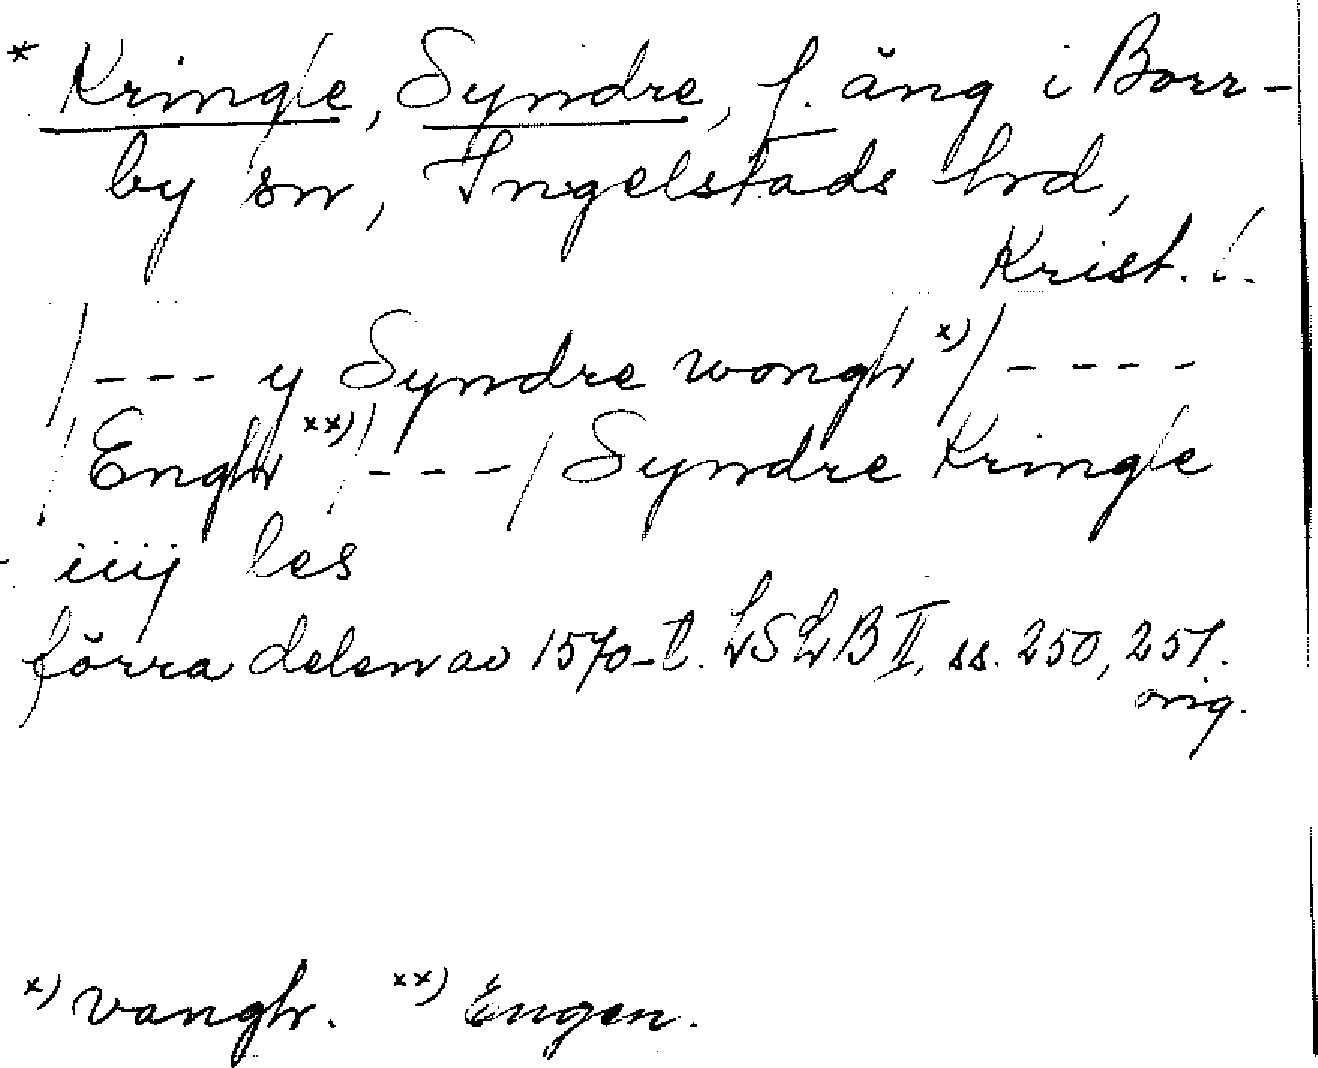 * Kringle, Syndre, f. äng i Borr-
by sn, Ingelstads hrd,
Krist. l.
/--- y Syndre wongh x)/----
/Engh xx)/---/ Syndre Kringle
iiij les
förra delen av 1570-t. LSLB II, ss. 250, 251.
orig.
x) vangh. xx) Engen.